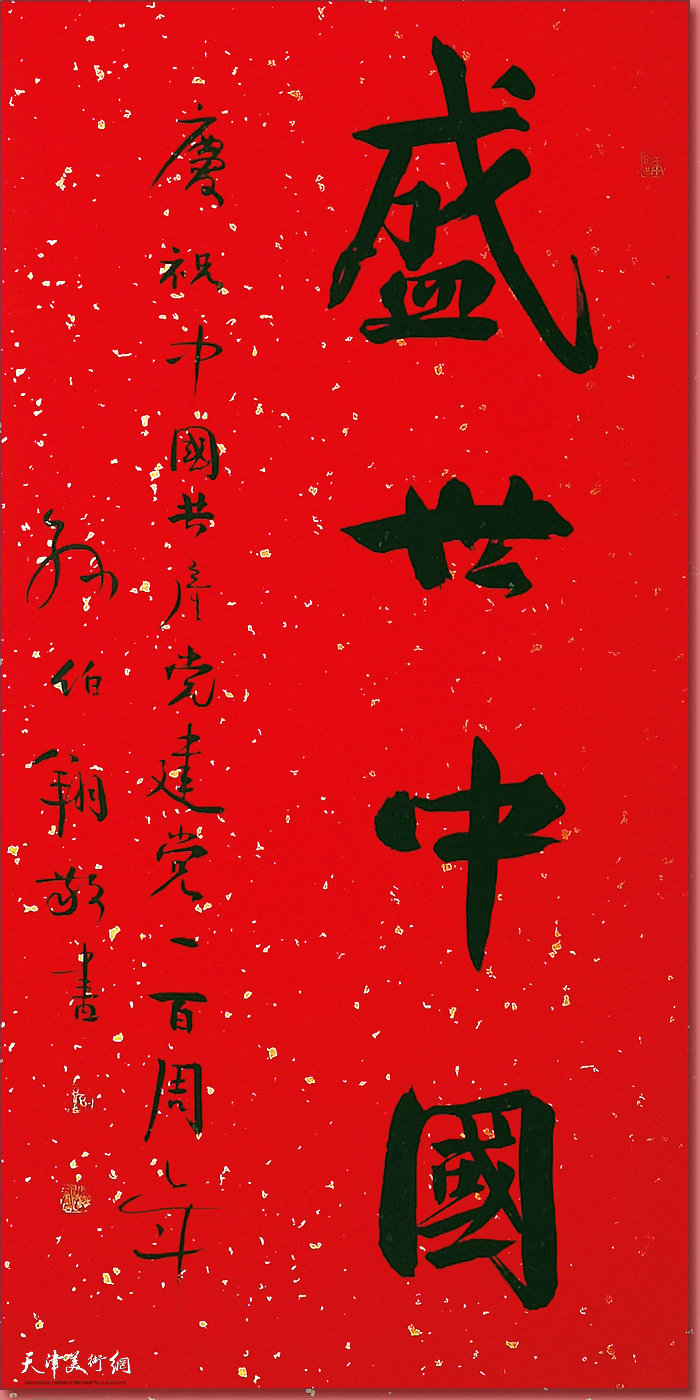 盛世中國
慶祝中國共產党建党一百周年
孫伯翔敬書
天津美術網